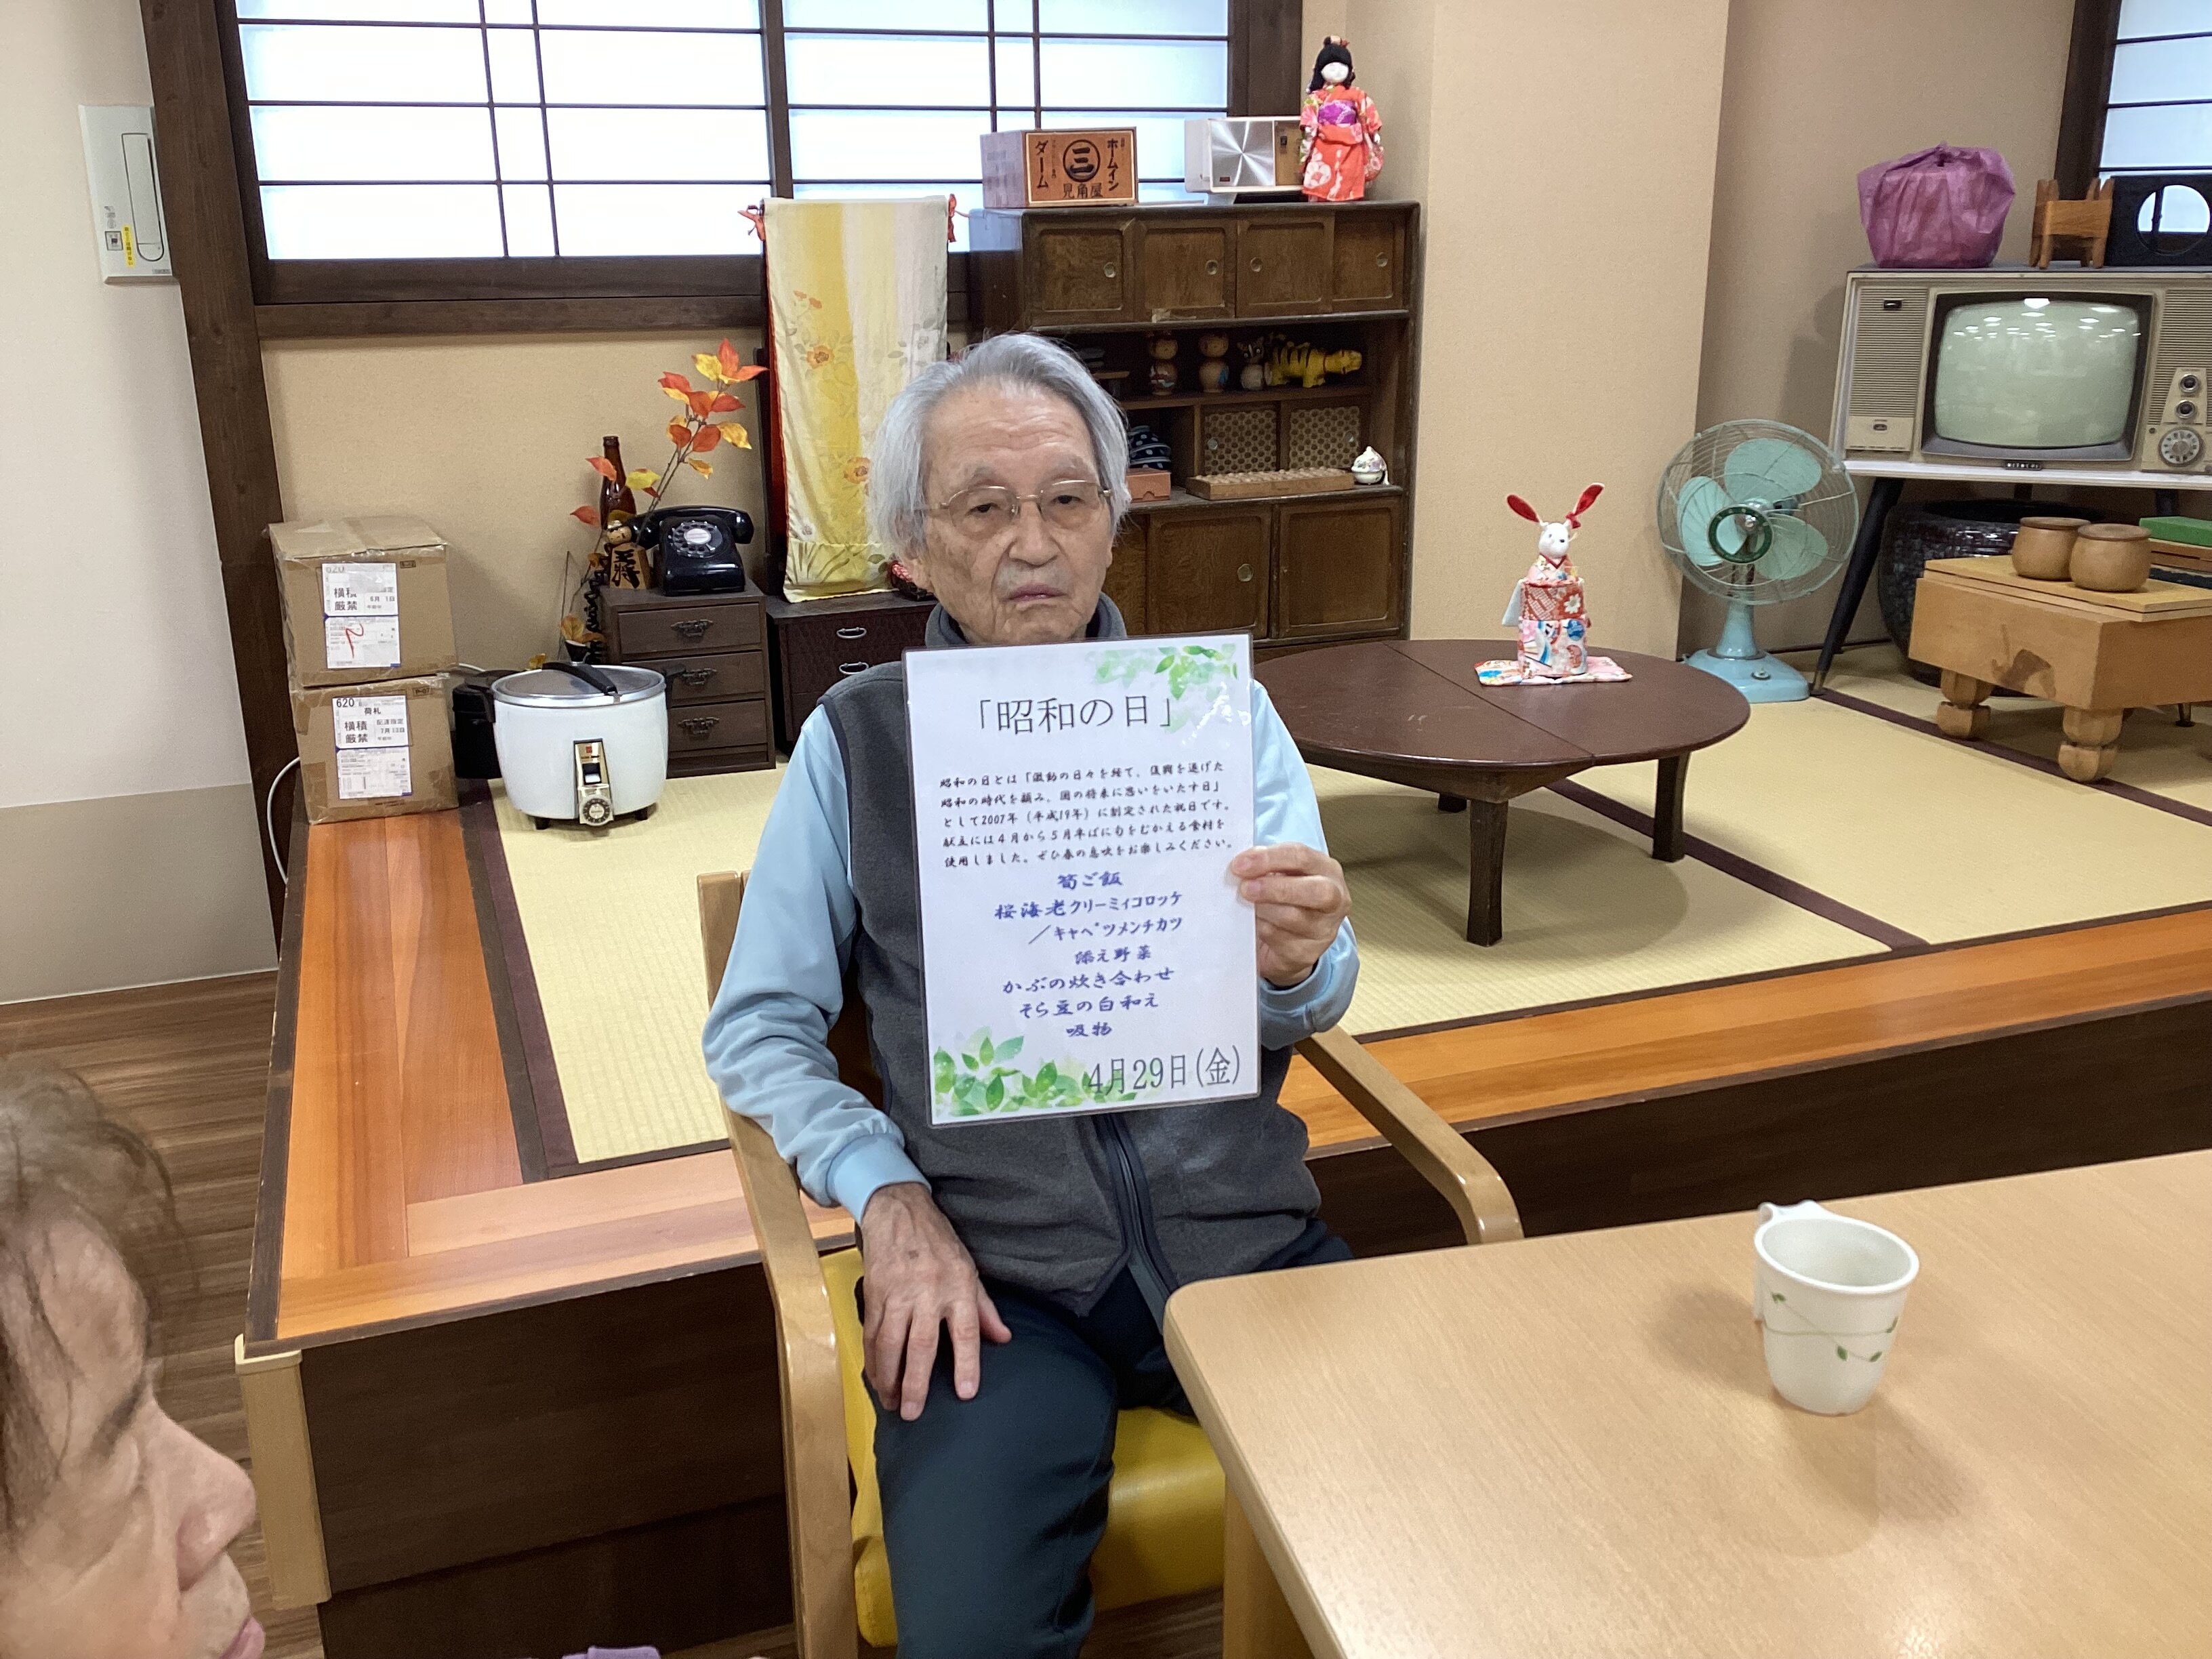 「昭和の日」
昭和の日とは「激動の日々を経て、復興を遂げた
昭和の時代を顧み、国の将来に思いをいたす日」
として2007年（平成19年）に制定された祝日です。
献立には４月から５月半ばに旬をむかえる食材を
使用しました。ぜひ春の息吹をお楽しみください。
筍ご飯
桜海老クリーミィコロッケ
／キャベツメンチカツ
添え野菜
かぶの炊き合わせ
そら豆の白和え
吸物
4月29日(金)
ホームイン
三
見角屋
ダーム
王将
横積
厳禁
6月 1日
620
荷札
横積
厳禁
配達指定
7月13日
HITACHI